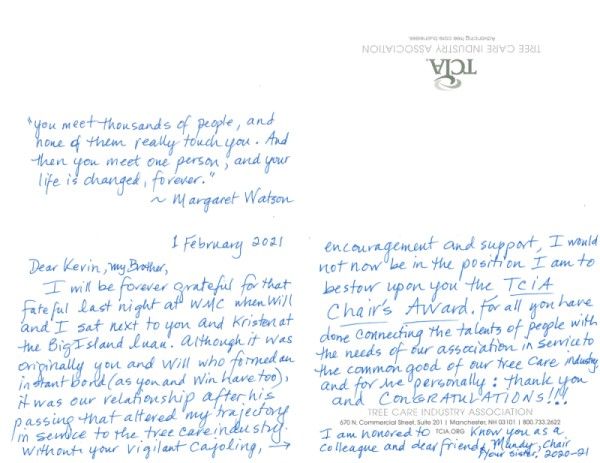 "you meet thousands of people, and
none of them really touch you. And
then you meet one person, and your
life is changed, forever."
~ Margaret Watson
1 February 2021
Dear Kevin, my Brother,
I will be forever grateful for that
fateful last night at WMC when Will
and I sat next to you and Kristen at
the Big Island luau. Although it was
originally you and Will who formed an
instant bond (as you and Win have too),
it was our relationship after his
passing that altered my trajectory
in service to the tree care industry.
Without your vigilant cajoling, →
TCIA
TREE CARE INDUSTRY ASSOCIATION
Advancing tree care businesses
encouragement and support, I would
not now be in the position I am to
bestow upon you the TCiA
Chair's Award. For all you have
done connecting the talents of people with
the needs of our association in service to
the common good of our tree care industry
and for me personally: thank you
and CONGRATULATIONS!!!
TREE CARE INDUSTRY ASSOCIATION
670 N. Commercial Street, Suite 201 | Manchester, NH 03101 | 800.733.2622
TCIA.ORG
I am honored to know you as a
colleague and dear friend. Mundy, Chair
Your sister, 2020-21